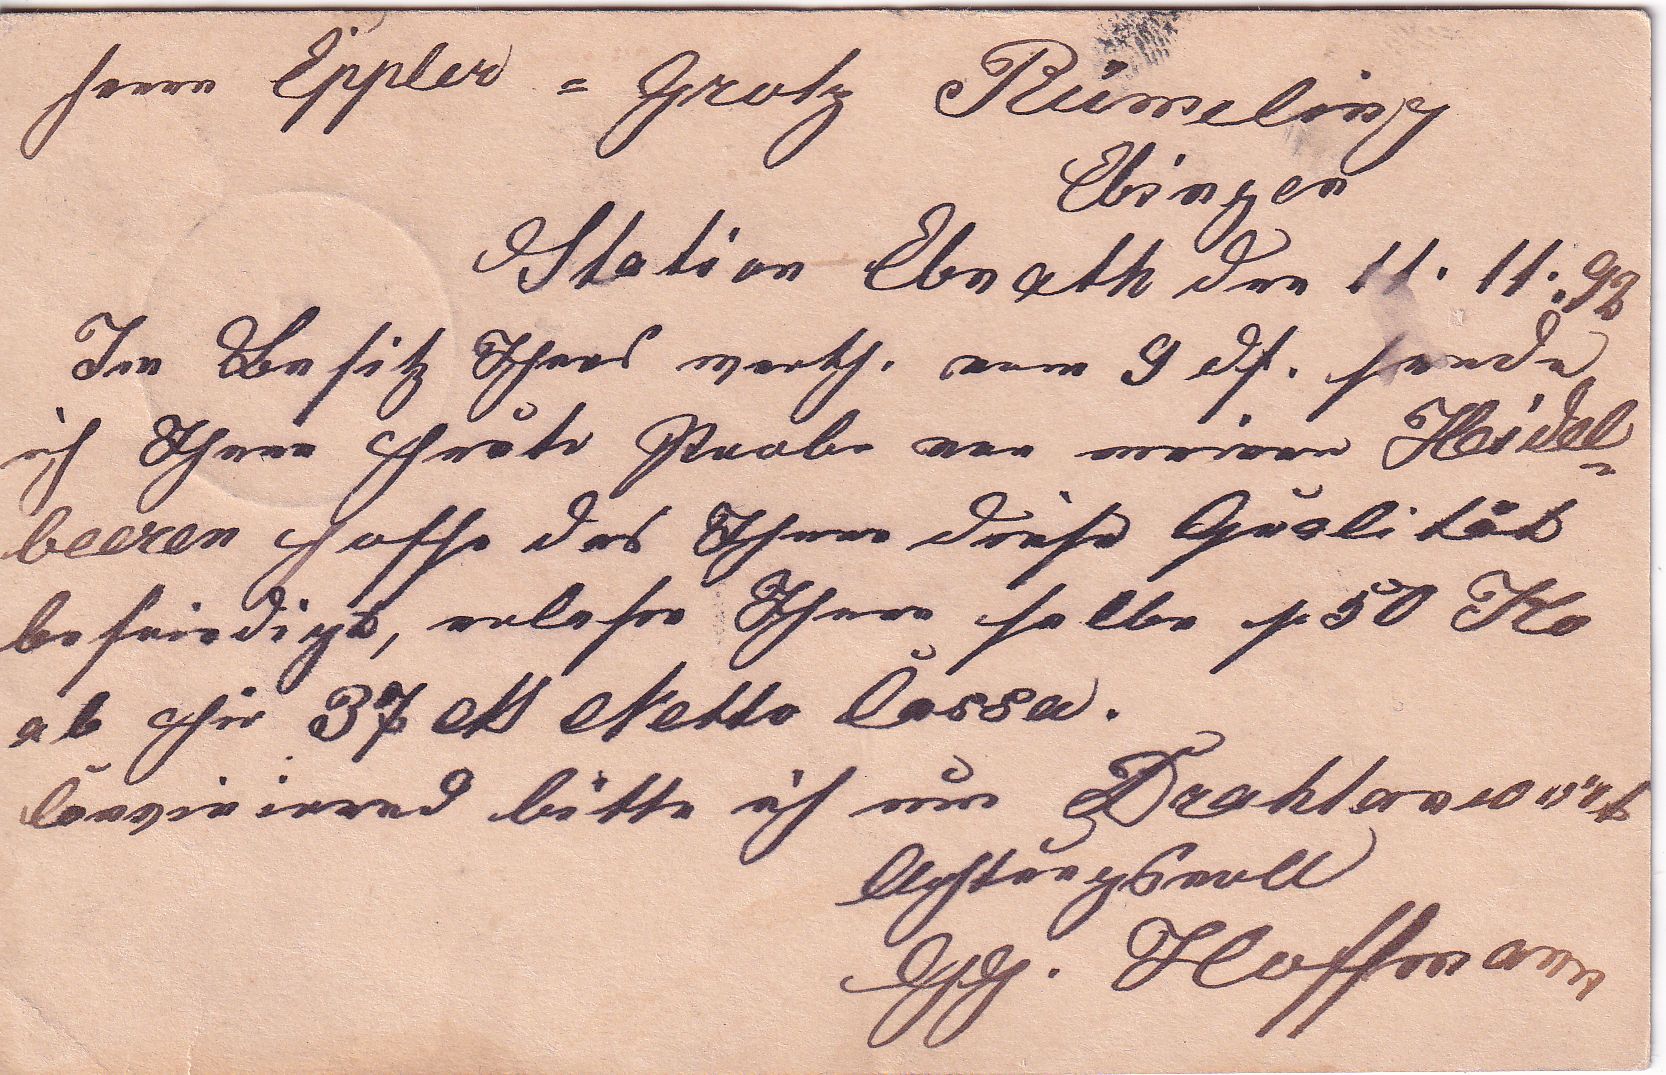 Herrn Eppler = Grotz Rümeling
Ebingen
Station Ebnath den 11. 11. 92
Im Besitz Ihres werth. vom 9 ds. sende
ich Ihnen heute Probe von meinen Heidel=
beeren hoffe das Ihnen diese Qualität
befriedigt, erlasse Ihnen selbe p 50 Ko
ab hir 37 M Netto Cassa.
Convenierend bitte ich um Drahtanwort
Achtungsvoll
Gg. Hoffmann